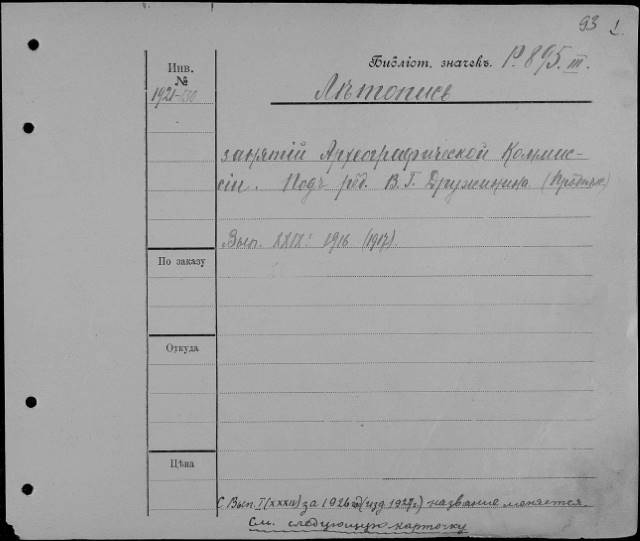 93 1.
Инв.
№
1921-530
Библіот. значекъ. Р.895. III.
Лѣтопись
занятій Археографической Коммис-
сіи. Подъ ред. В. Г. Дружинина
Вып. XXIX: 1916 (1917).
По заказу
Откуда
Цѣна
С Вып. I (XXXIV) за 1926 год (изд. 1927 г.) название меняется.
См. следующую карточку